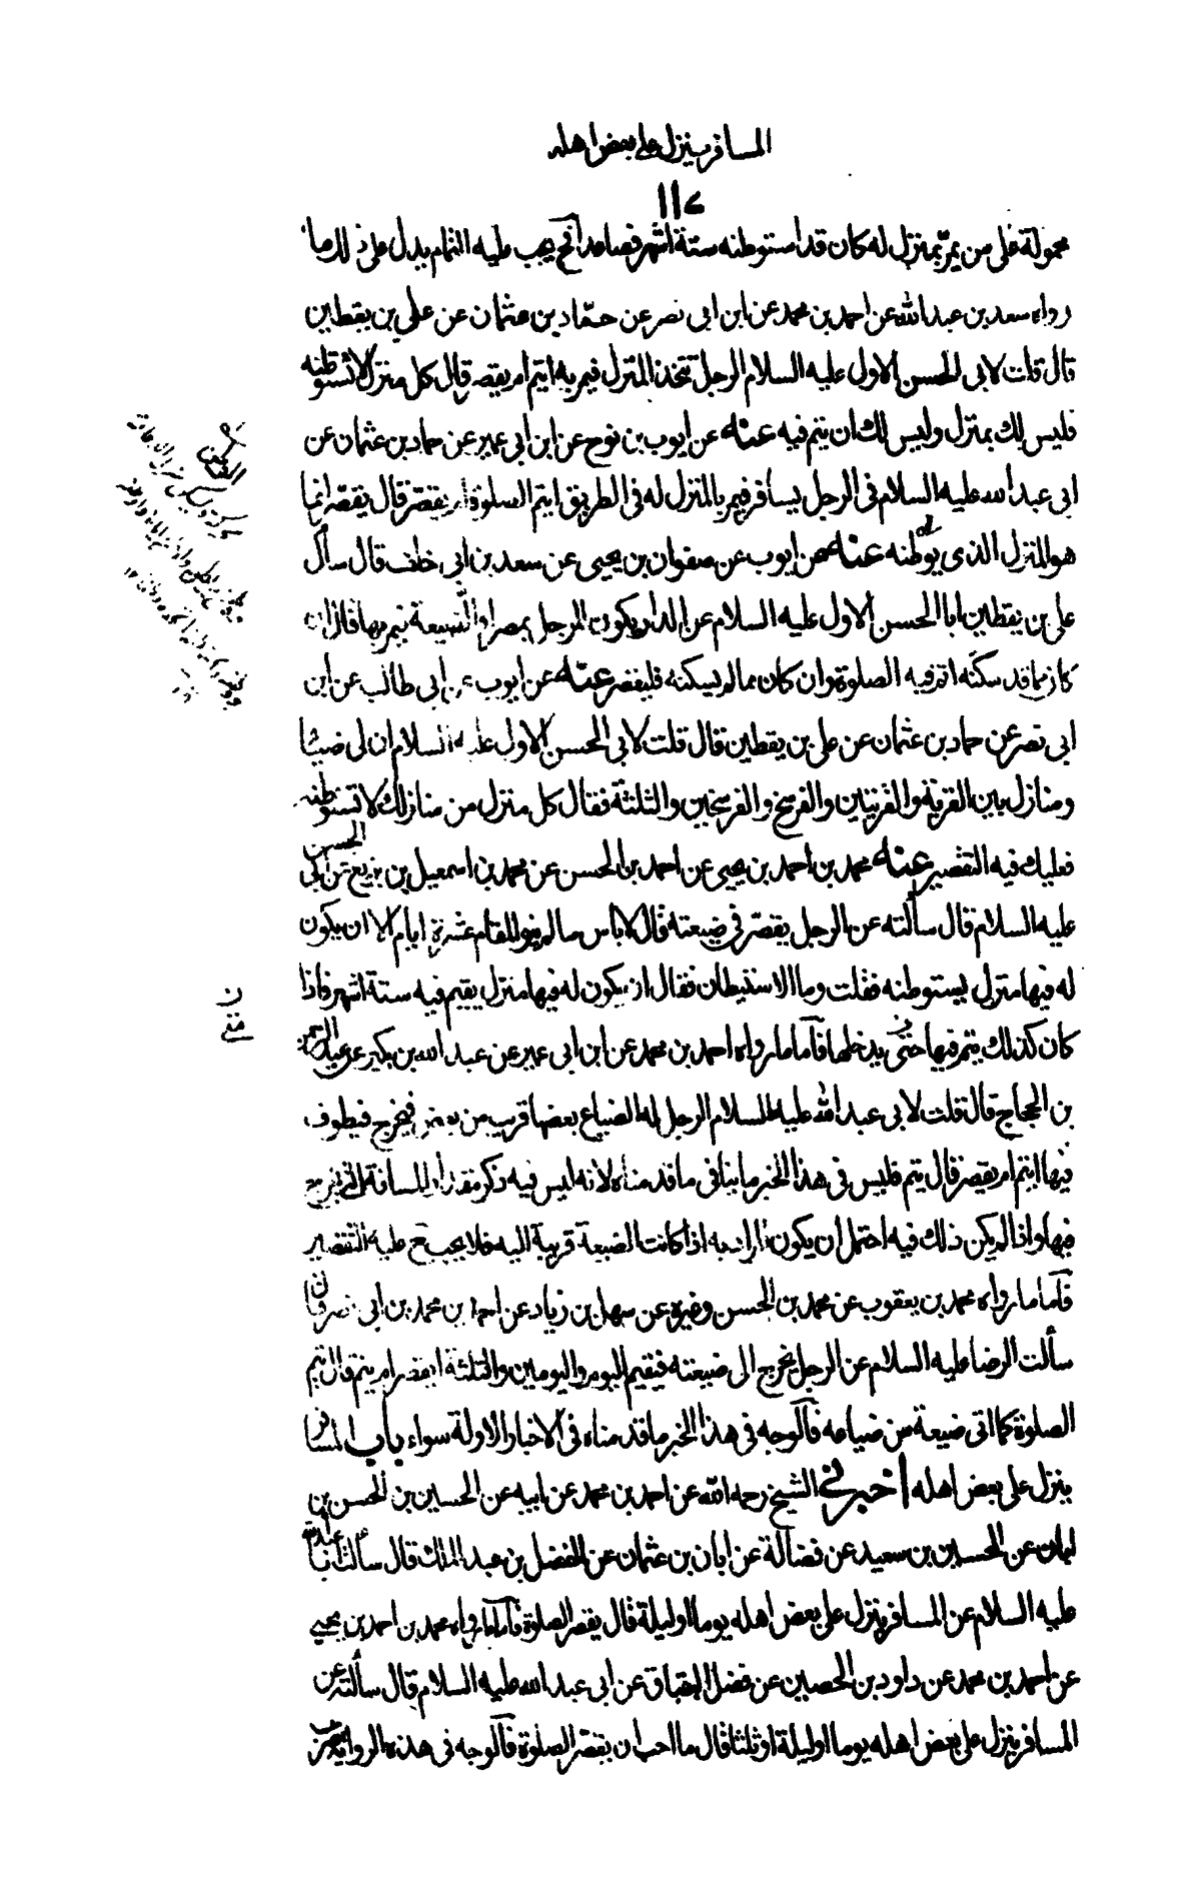 المسافر ينزل على بعض اهله
١١٧
محمولة على من يمرّ بمنزل له كان قد استوطنه ستة اشهر فصاعدا فح يجب عليه التمام يدل على ذلك ما
رواه سعد بن عبد الله عن احمد بن محمد عن ابن ابى نصر عن حمّاد بن عثمان عن على بن يقطين
قال قلت لابى الحسن الاول عليه السلام الرجل يتخذ المنزل فيمر به ايتم ام يقصر قال كل منزل لا تستوطنه
فليس لك بمنزل وليس لك ان يتم فيه عنه عن ايوب بن نوح عن ابن ابى عمير عن حماد بن عثمان عن
ابى عبد الله عليه السلام فى الرجل يسافر فيمر بالمنزل له فى الطريق ايتم الصلوة ام يقصّر قال يقصّر انما
هو المنزل الذى توطنه عنه عن ايوب عن صفوان بن يحيى عن سعد بن ابى خلف قال سأل
على بن يقطين ابا الحسن الاول عليه السلام عن الدار يكون للرجل بمصر او الضيعة فيمر بها قال ان
كان مما قد سكنه اتم فيه الصلوة وان كان مما لم يسكنه فليقصر عنه عن ايوب عن ابى طالب عن ابن
ابى نصر عن حماد بن عثمان عن على بن يقطين قال قلت لابى الحسن الاول عليه السلام ان لى ضياعا
ومنازل بين القرية والقريتين والفرسخ والفرسخين والثلثة فقال كل منزل من منازلك لا تستوطنه
فعليك فيه التقصير عنه محمد بن احمد بن يحيى عن احمد بن الحسن عن محمد بن اسمعيل بن بزيع عن ابى الحسن
عليه السلام قال سألته عن الرجل يقصّر فى ضيعته قال لا باس ما لم ينو المقام عشرة ايام الا ان يكون
له فيها منزل يستوطنه فقلت وما الاستيطان فقال ان يكون له فيها منزل يقيم فيه ستة اشهر فاذا
كان كذلك يتم فيها حتى يدخلها فاما ما رواه احمد بن محمد عن ابن ابى عمير عن عبد الله بن بكير عن عبد الرحمن
بن الحجاج قال قلت لابى عبد الله عليه السلام الرجل له الضياع بعضها قريب من بعض فيخرج فيطوف
فيها ايتم ام يقصر قال يتم فليس فى هذا الخبر ما ينافى ما قدمناه لانه ليس فيه ذكر مقدار المسافة التى يخرج
فيها واذا لم يكن ذلك فيه احتمل ان يكون المراد به اذا كانت الضيعة قريبة اليه فلا يجب ح عليه التقصير
فاما ما رواه محمد بن يعقوب عن محمد بن الحسن وغيره عن سهل بن زياد عن احمد بن محمد بن ابى نصر قال
سألت الرضا عليه السلام عن الرجل يخرج الى ضيعته فيقيم اليوم واليومين والثلثة ايقصر ام يتم قال يتم
الصلوة كلما اتى ضيعة من ضياعه فالوجه فى هذا الخبر ما قدمناه فى الاخبار الاولة سواء باب المسافر
ينزل على بعض اهله اخبرنى الشيخ رحمه الله عن احمد بن محمد عن ابيه عن الحسين بن الحسن بن
ابان عن الحسين بن سعيد عن فضالة عن ابان بن عثمان عن الفضل بن عبد الملك قال سألت ابا عبد الله
عليه السلام عن المسافر ينزل على بعض اهله يوما اوليلة قال يقصر الصلوة فاما ما رواه محمد بن احمد بن يحيى
عن احمد بن محمد عن داود بن الحصين عن فضل البقباق عن ابى عبد الله عليه السلام قال سألته عن
المسافر ينزل على بعض اهله يوما اوليلة او ثلثا قال ما احب ان يقصّر الصلوة فالوجه فى هذه الرواية